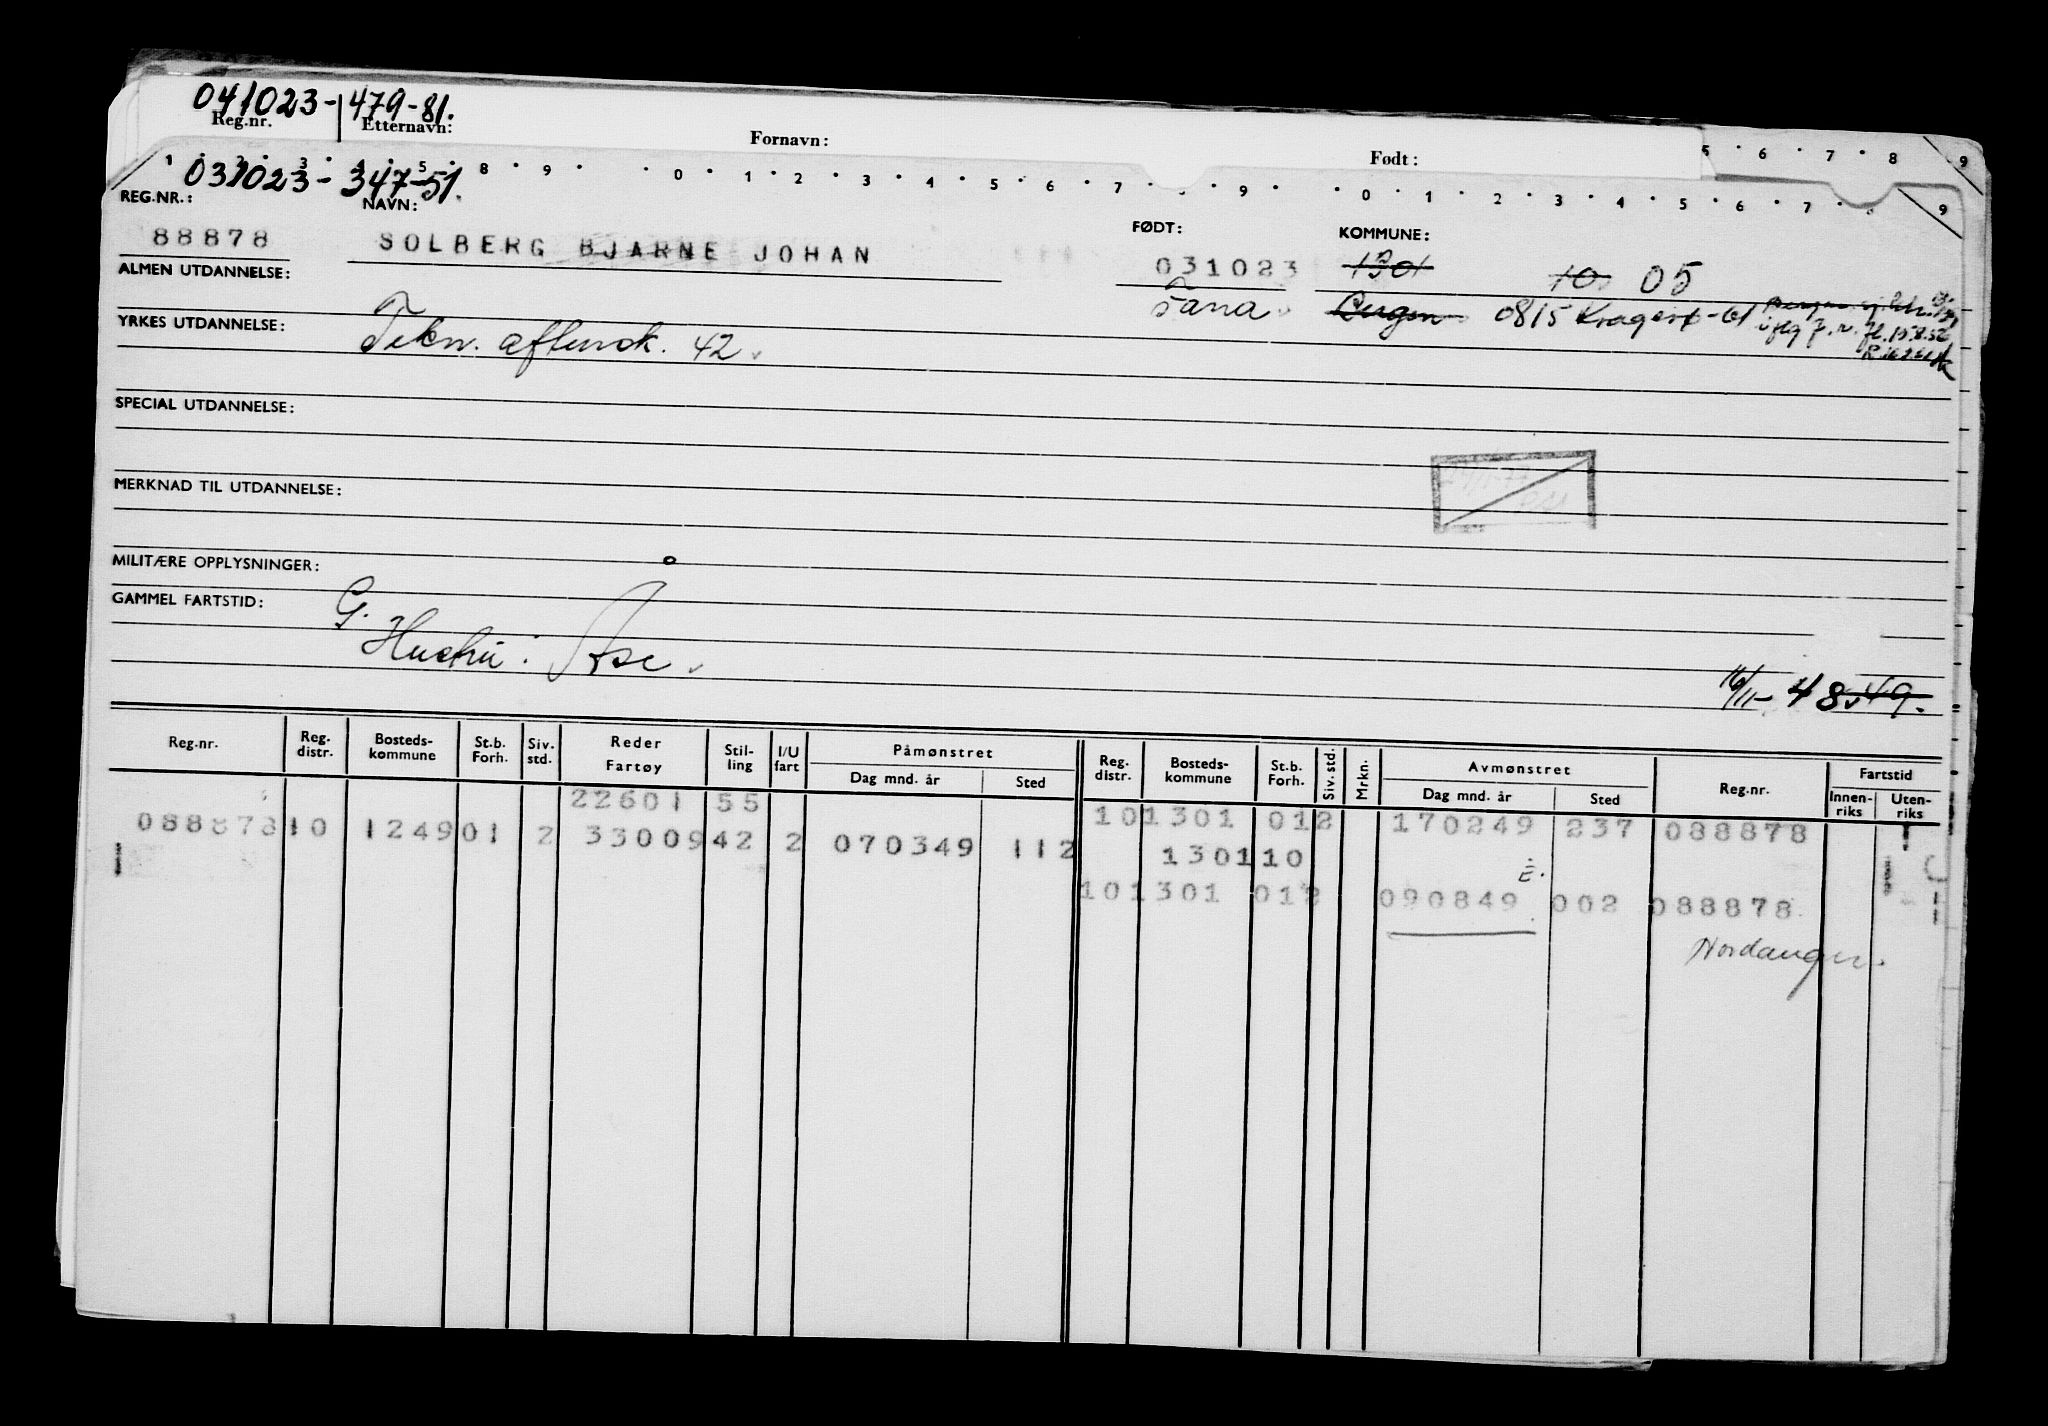 041023-479-81.
Reg.nr. Etternavn: Fornavn: Født:
031023-347-51.
REG.NR.: NAVN: FØDT: KOMMUNE:
88878 SOLBERG BJARNE JOHAN 031023 1301 10 05
ALMEN UTDANNELSE: Fana Bergen 0815 Kragerø-61
YRKES UTDANNELSE: Tekn. aftensk. 42.
SPECIAL UTDANNELSE:
MERKNAD TIL UTDANNELSE:
MILITÆRE OPPLYSNINGER:
GAMMEL FARTSTID: G.
Hustru: Åse.
16/11-48 49.
Reg.nr. Reg. distr. Bosteds-kommune St.b. Forh. Siv. std. Reder Fartøy Stil-ling I/U fart Påmønstret Dag mnd. år Sted Reg. distr. Bosteds-kommune St.b. Forh. Siv. std. Mrkn. Avmønstret Dag mnd. år Sted Reg.nr. Fartstid Innen-riks Uten-riks
22601 55 10 1301 01 2 170249 237 088878
088878 10 1249 01 2 33009 42 2 070349 112 1301 10
E.
10 1301 01 2 090849 002 088878
Nordanger.